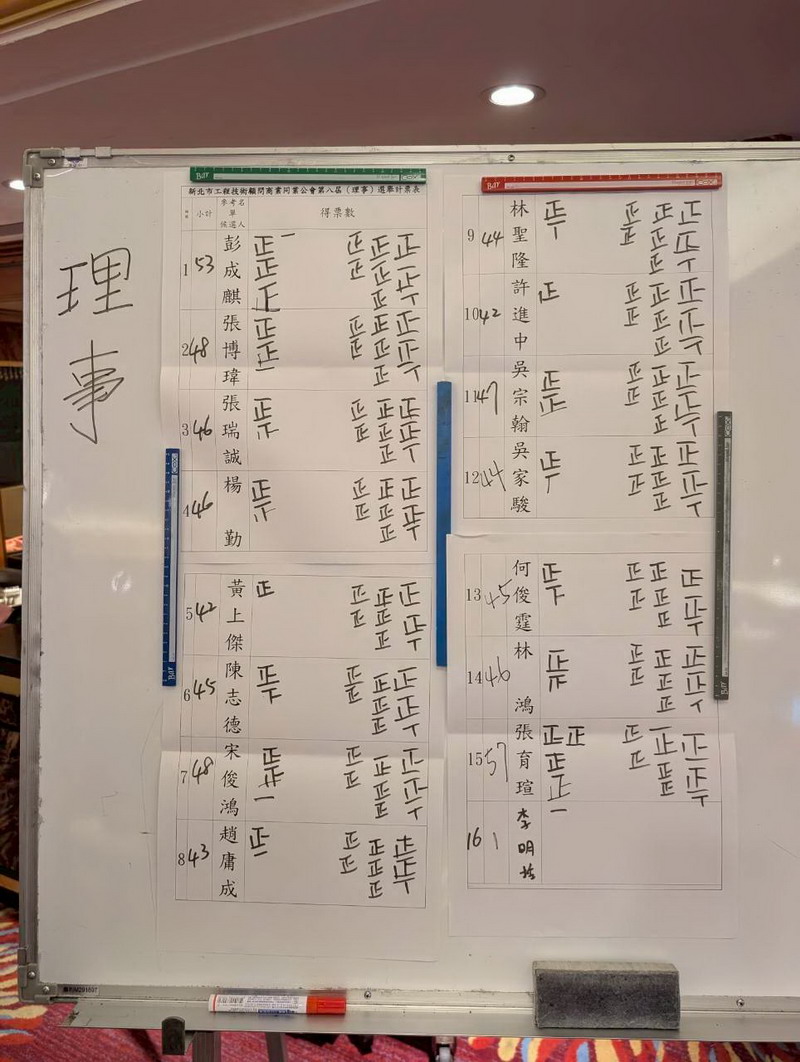 理事
新北市工程技術顧問商業同業公會第八屆（理事）選舉計票表
小計 參考名單候選人 得票數
1 53 彭成麒
2 48 張博瑋
3 46 張瑞誠
4 46 楊勤
5 42 黃上傑
6 45 陳志德
7 48 宋俊鴻
8 43 趙庸成
9 44 林聖隆
10 42 許進中
11 47 吳宗翰
12 44 吳家駿
13 45 何俊霆
14 46 林鴻
15 57 張育瑄
16 1 李明